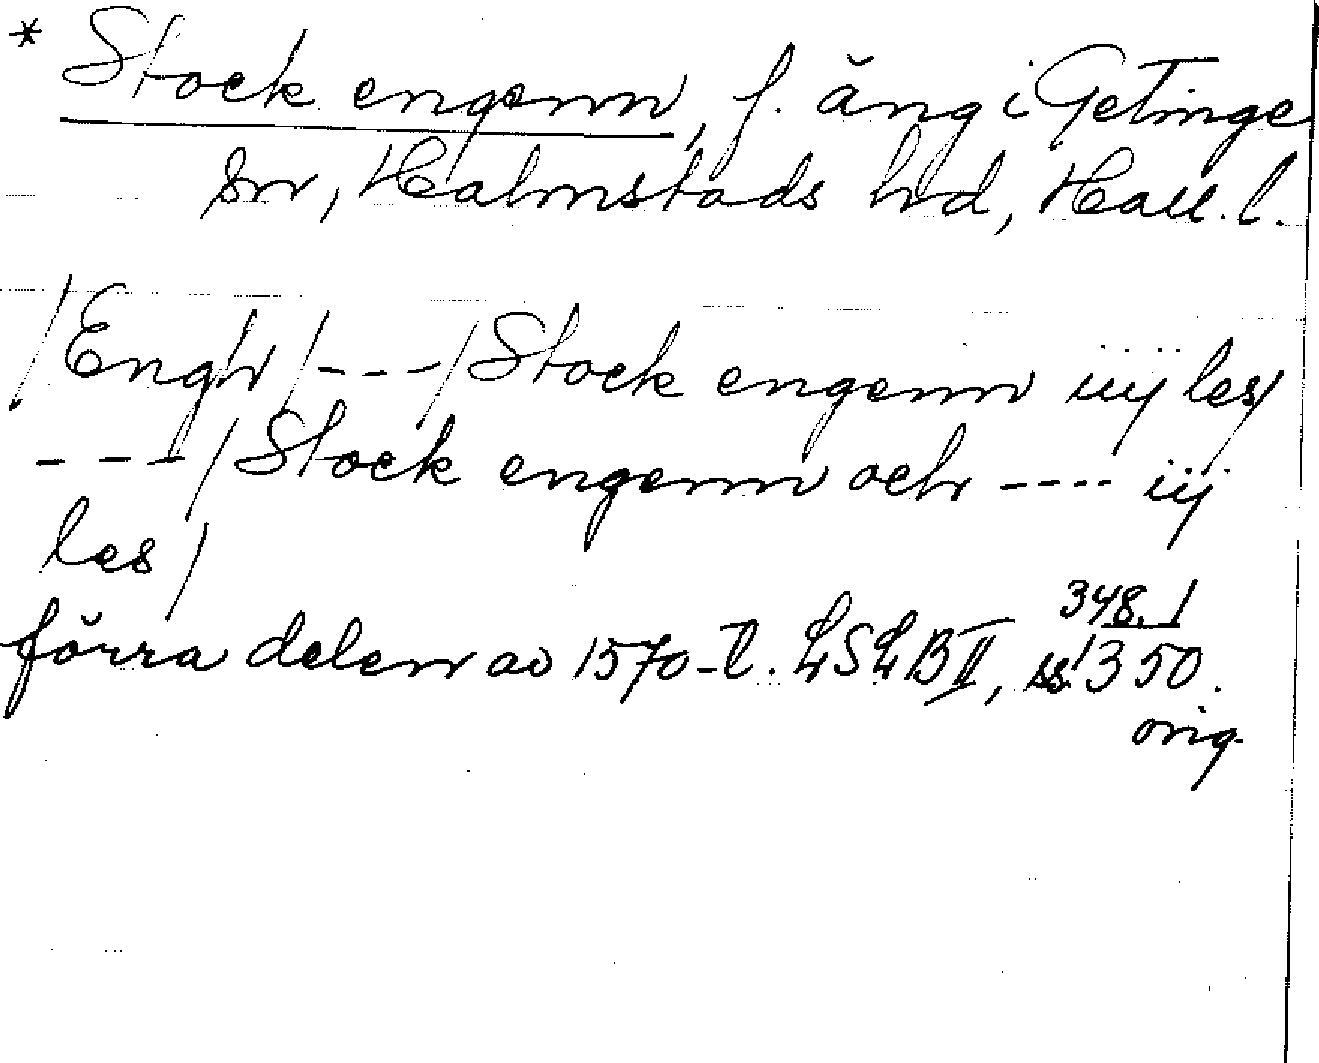 * Stock engenn, f. äng i Getinge
sn, Halmstads hd, Hall. l.
/Engh/ --- /Stock engenn iiij les/
--- /Stock engenn och ---- iij
les/
348, 1
förra delen av 1570-t. LSLB II, ss. 350.
orig.